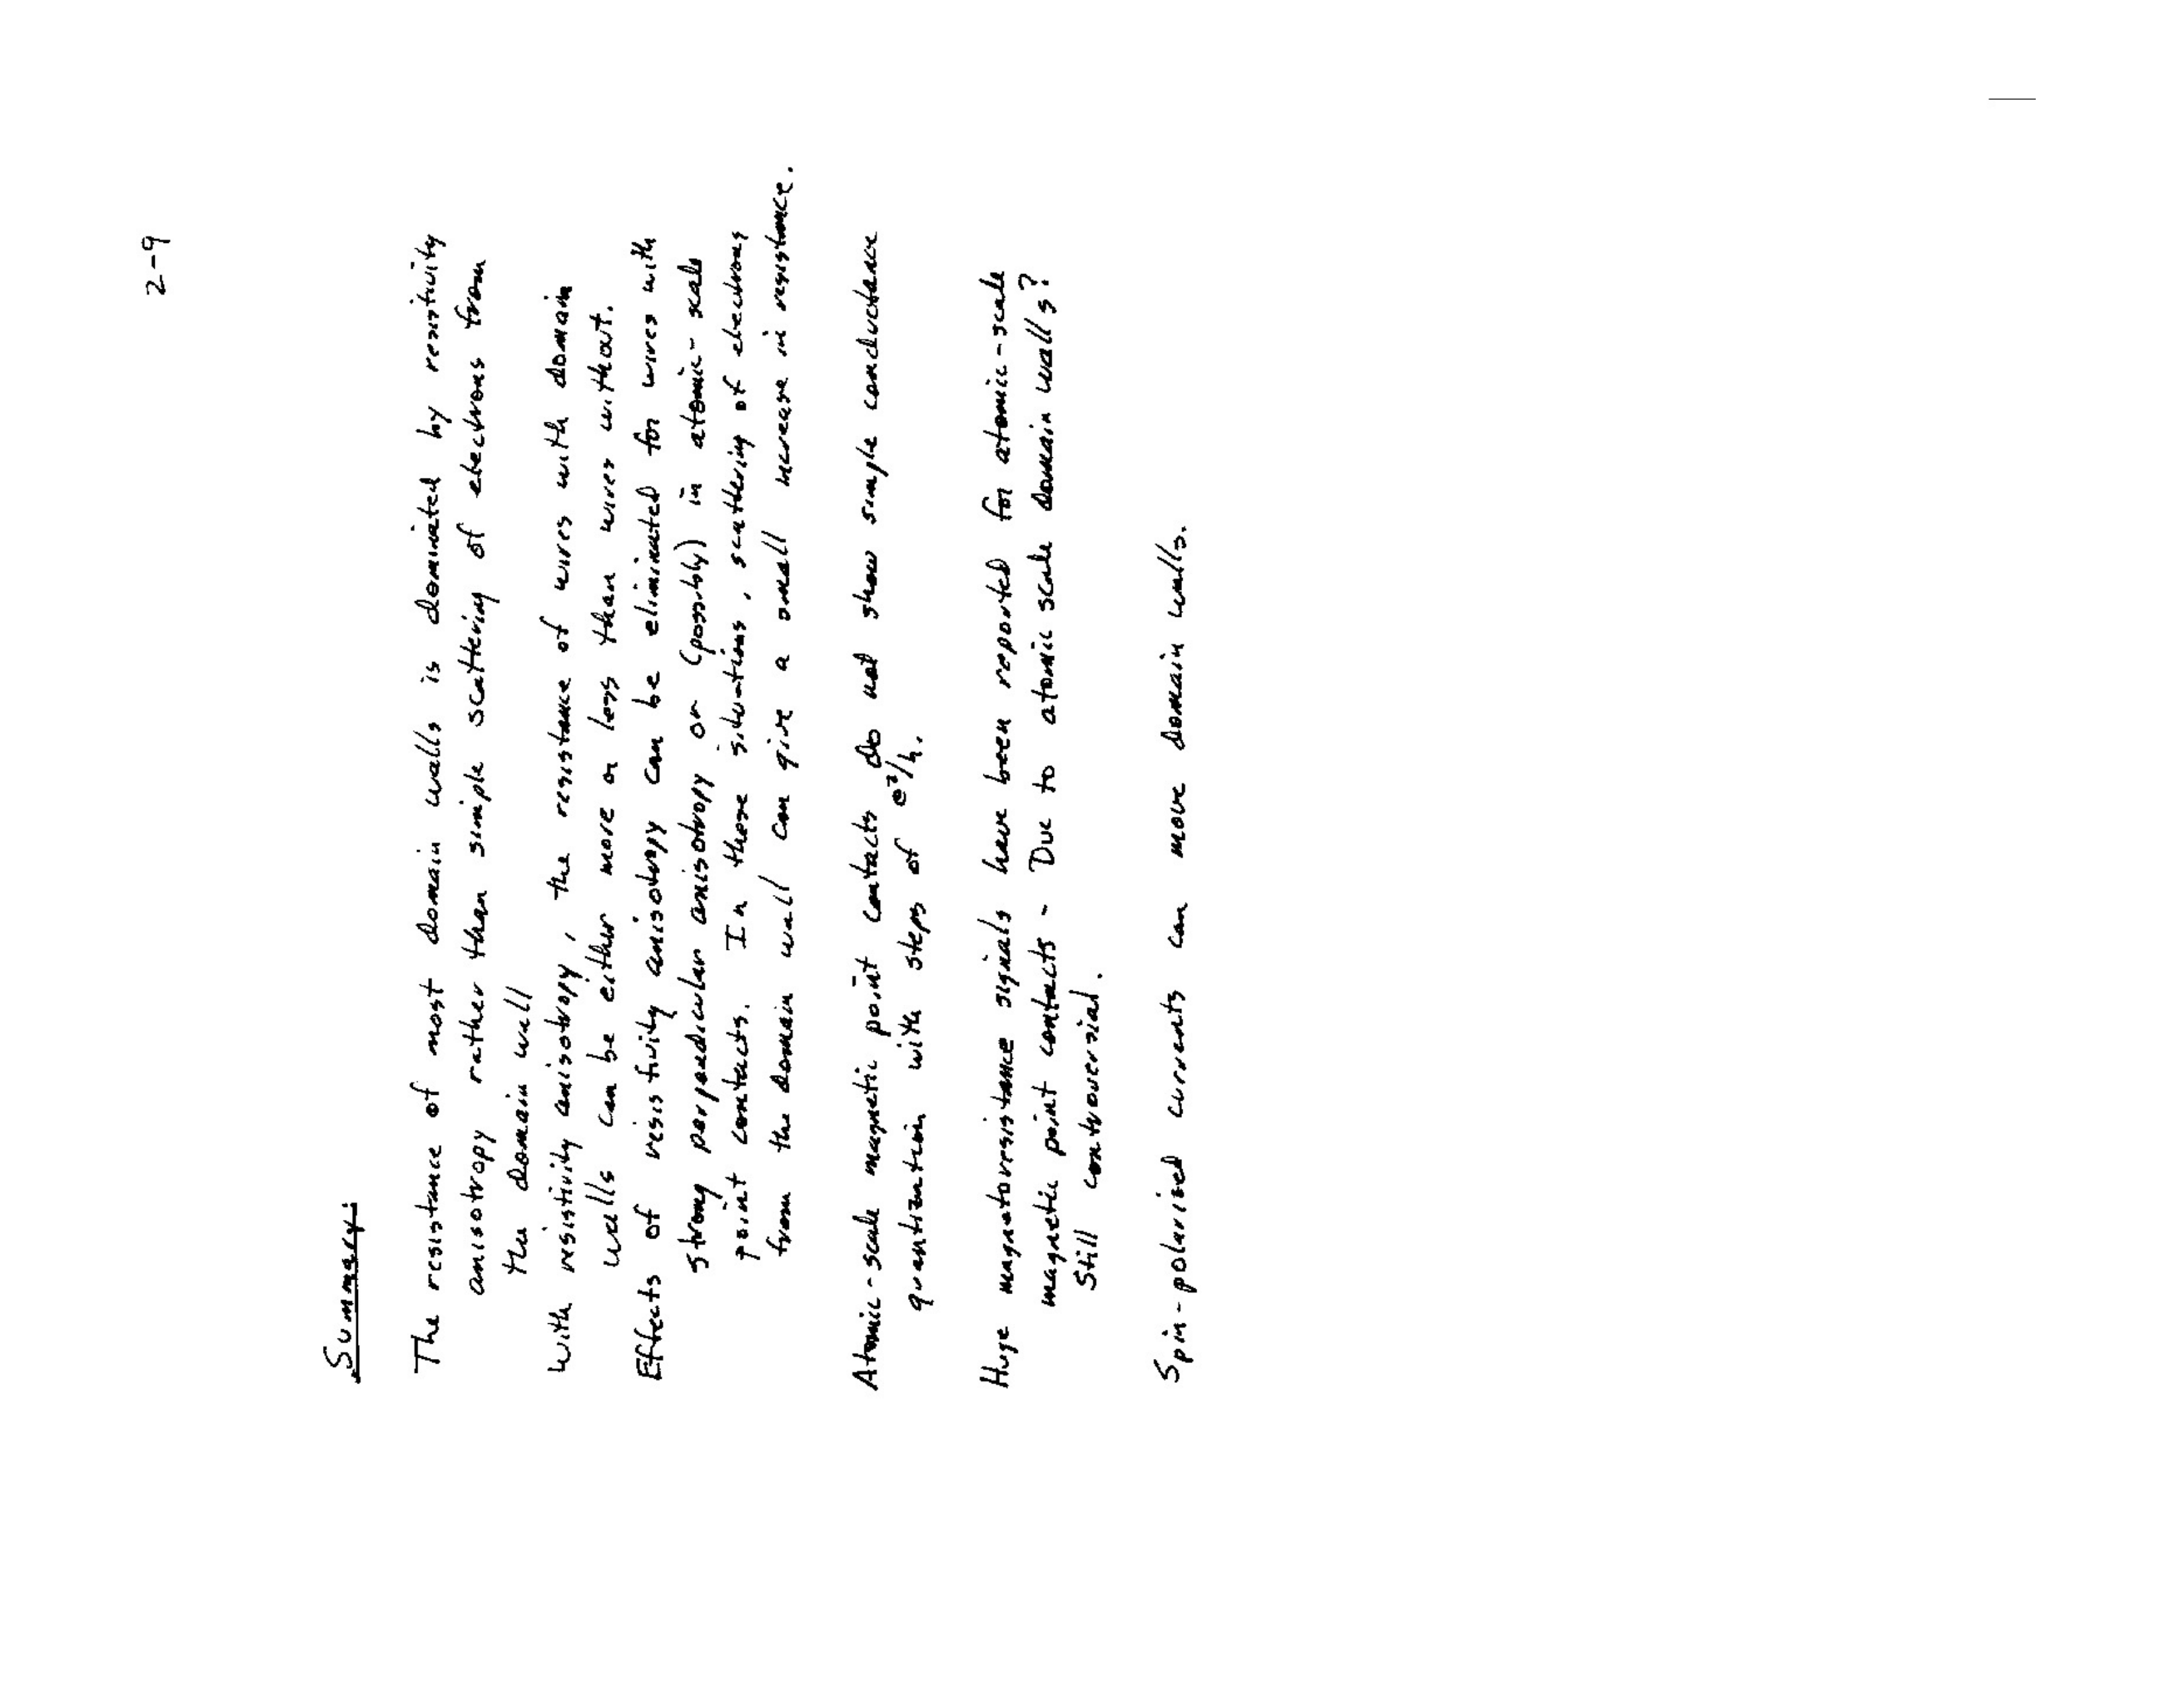 2-9
Summary:
The resistance of most domain walls is dominated by resistivity
anisotropy rather than simple scattering of electrons from
the domain wall
With resistivity anisotropy, the resistance of wires with domain
walls can be either more or less than wires without.
Effects of resistivity anisotropy can be eliminated for wires with
strong perpendicular anisotropy or (possibly) in atomic-scale
point contacts. In these situations, scattering of electrons
from the domain wall can give a small increase in resistance.
Atomic-scale magnetic point contacts do not show simple conductance
quantization with steps of e²/h.
Huge magnetoresistance signals have been reported for atomic-scale
magnetic point contacts - Due to atomic scale domain walls?
Still controversial.
Spin-polarized currents can move domain walls.